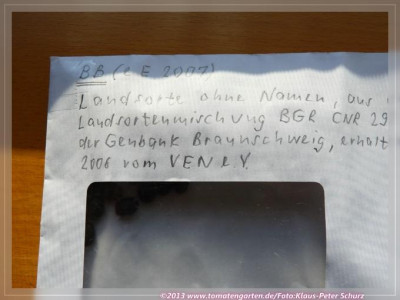 BB (e.E. 2007)
Landsorte ohne Namen, aus
Landsortenmischung BGR CNR 29
der Genbank Braunschweig, erhalt
2006 vom VEN e.V.
©2013 www.tomatengarten.de/Foto:Klaus-Peter Schurz